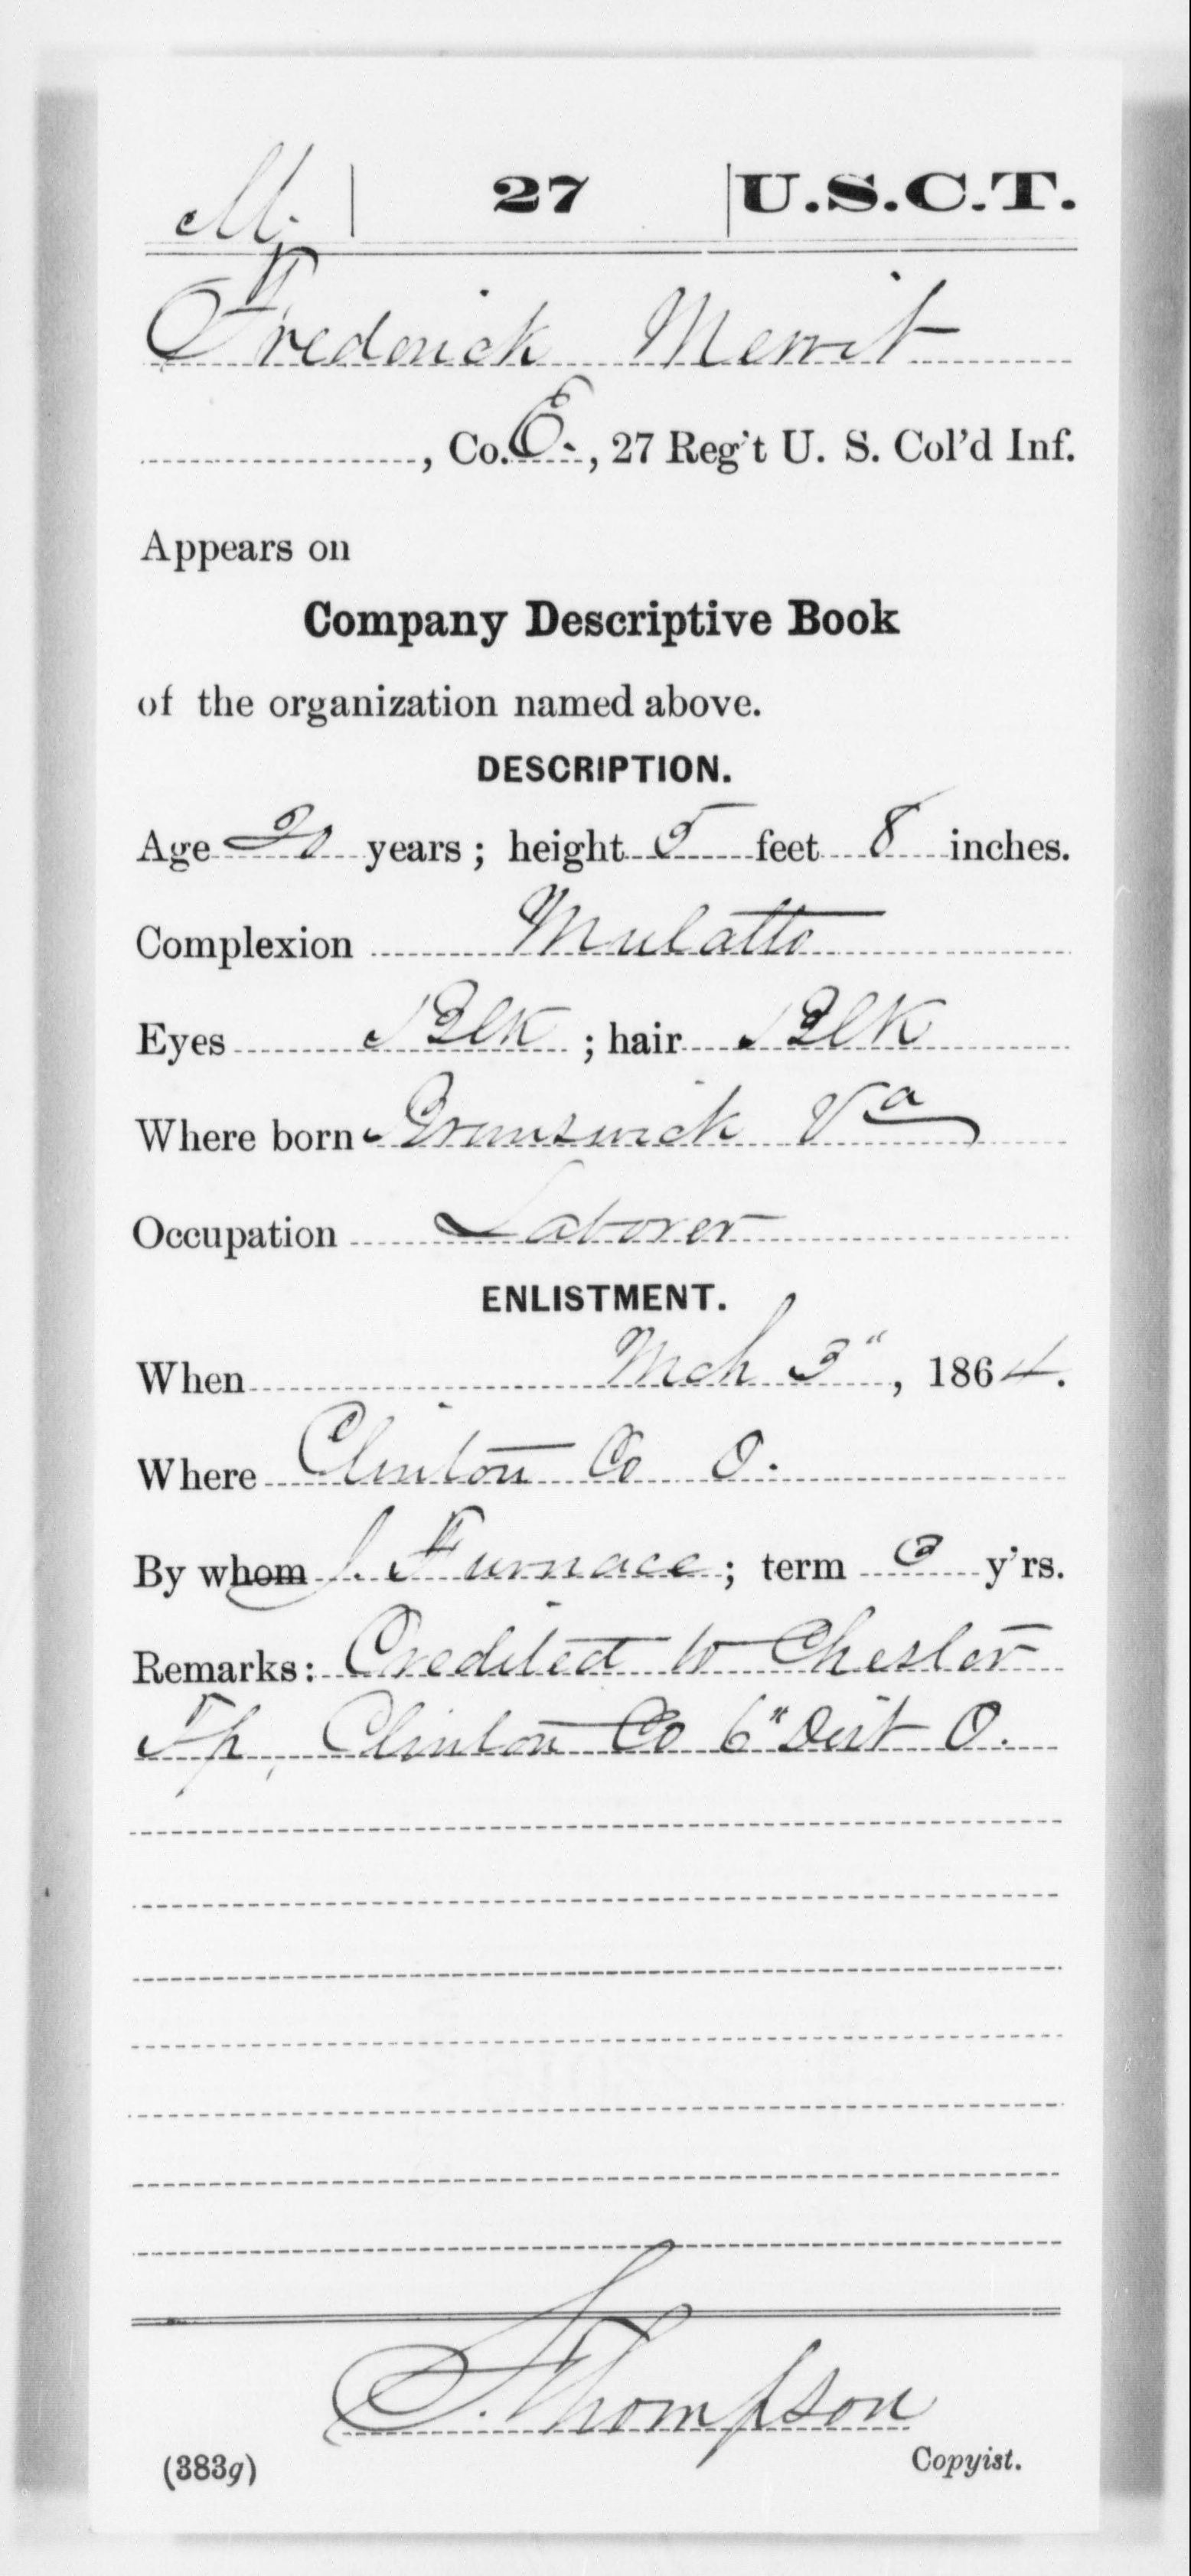 M. | 27 | U.S.C.T.
Frederick Merrit
, Co. E., 27 Reg't U. S. Col'd Inf.
Appears on
Company Descriptive Book
of the organization named above.
DESCRIPTION.
Age 20 years; height 5 feet 8 inches.
Complexion Mulatto
Eyes Blk; hair Blk
Where born Brunswick Va
Occupation Laborer
ENLISTMENT.
When Mch 3", 1864.
Where Clinton Co O.
By whom J. Furnace; term 3 y'rs.
Remarks: Credited to Chester
Tp, Clinton Co 6" Dist O.
S. Thompson
(383g) Copyist.